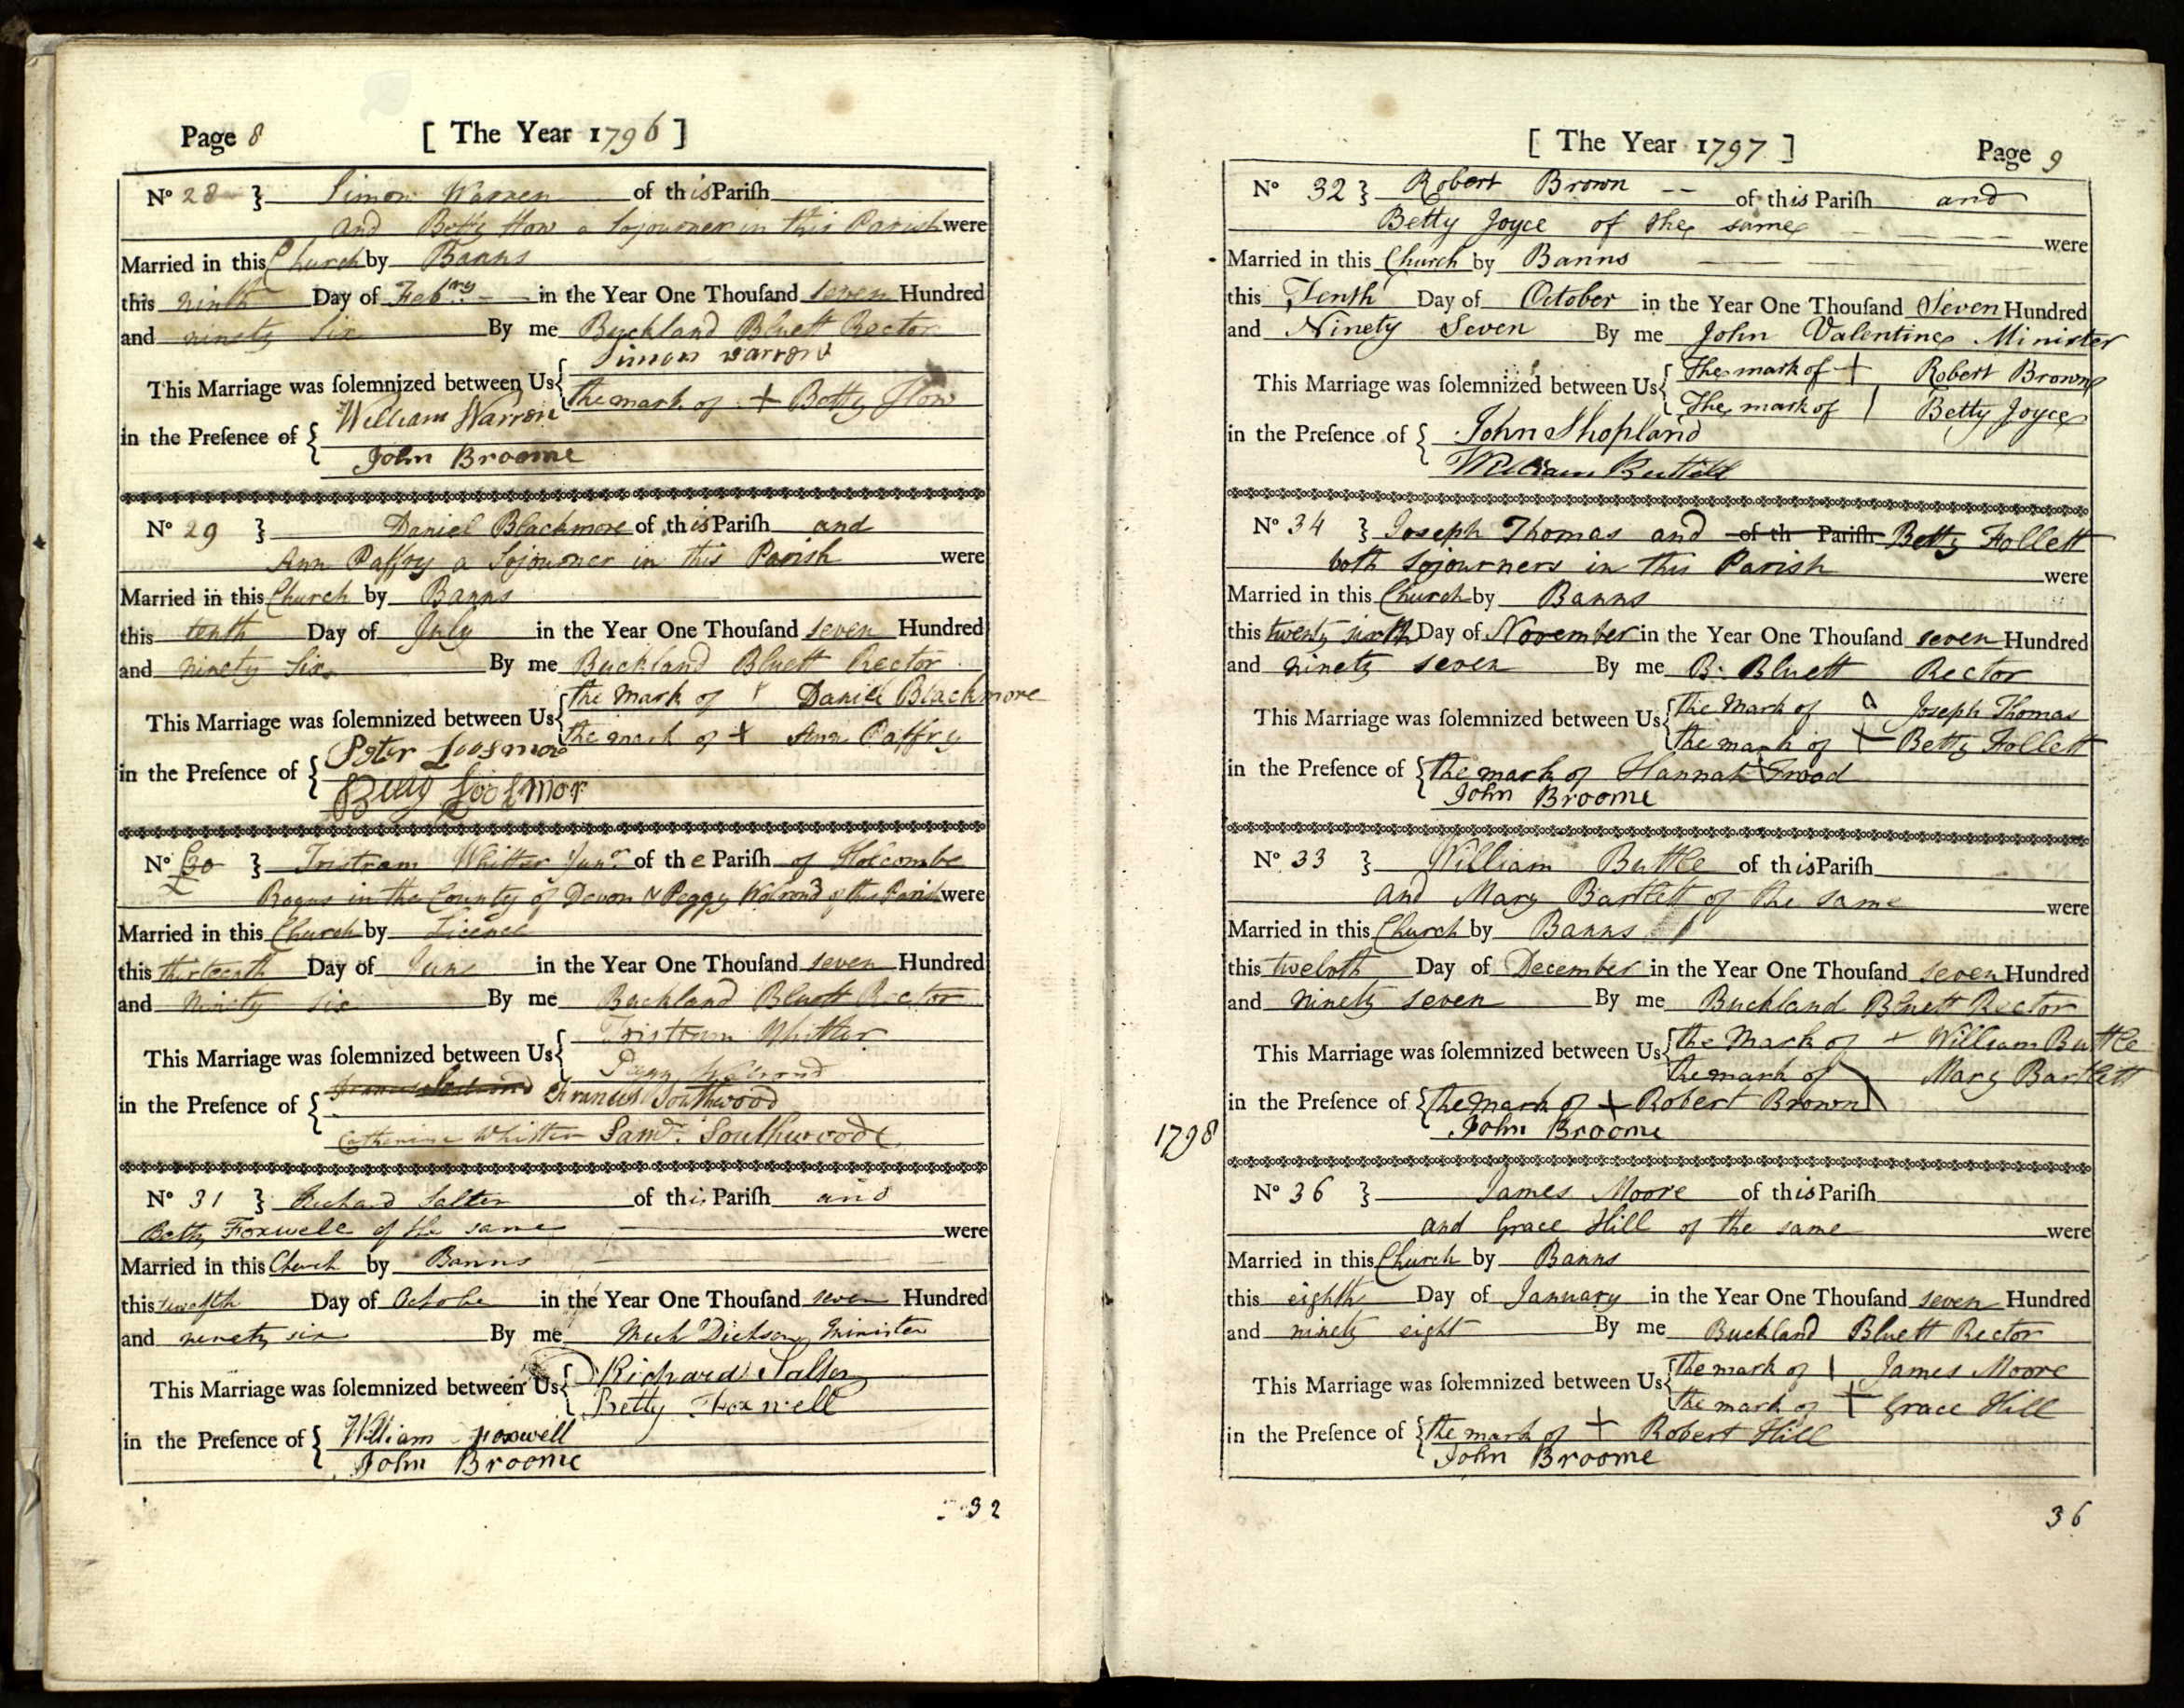 Page 8 [ The Year 1796 ]
No 28 } Simon Warren of this Pariſh
and Betty How a Sojourner in this Parish were
Married in this Church by Banns
this ninth Day of Febry in the Year One Thouſand seven Hundred
and ninety Six By me Buckland Bluett Rector
This Marriage was ſolemnized between Us { Simon warron
the mark of + Betty How
in the Preſence of { William Warron
John Broome
No 29 } Daniel Blackmore of this Pariſh and
Ann Paffry a Sojourner in this Parish were
Married in this Church by Banns
this tenth Day of July in the Year One Thouſand seven Hundred
and ninety Six By me Buckland Bluett Rector
This Marriage was ſolemnized between Us { the Mark of Daniel Blackmore
the mark of + Ann Paffry
in the Preſence of { Peter Loosmor
Betty Loosmor
No 30 } Tristram Whitter Junr of the Pariſh of Holcombe
Rogus in the County of Devon & Peggy Walrond of this Parish were
Married in this Church by Licence
this thirteenth Day of June in the Year One Thouſand seven Hundred
and ninety six By me Buckland Bluett Rector
This Marriage was ſolemnized between Us { Tristram Whitter
Peggy Walrond
in the Preſence of { Francis Southwood
Catherine Whitter Saml. Southwood
No 31 } Richard Salter of this Pariſh and
Betty Foxwell of the same were
Married in this Church by Banns
this twelfth Day of October in the Year One Thouſand seven Hundred
and ninety six By me Dickson Minister
This Marriage was ſolemnized between Us { Richard Salter
Betty Foxwell
in the Preſence of { William Foxwell
John Broome
32
[ The Year 1797 ] Page 9
No 32 } Robert Brown of this Pariſh and
Betty Joyce of the same were
Married in this Church by Banns
this Tenth Day of October in the Year One Thouſand Seven Hundred
and Ninety Seven By me John Valentine Minister
This Marriage was ſolemnized between Us { The mark of + Robert Brown
The mark of | Betty Joyce
in the Preſence of { John Shopland
William
No 34 } Joseph Thomas and of th Pariſh Betty Follett
both Sojourners in this Parish were
Married in this Church by Banns
this twenty sixth Day of November in the Year One Thouſand seven Hundred
and ninety seven By me B. Bluett Rector
This Marriage was ſolemnized between Us { the Mark of Joseph Thomas
the mark of + Betty Follett
in the Preſence of { the mark of Hannah
John Broome
No 33 } William Buttle of this Pariſh
and Mary Bartlett of the same were
Married in this Church by Banns
this twelvth Day of December in the Year One Thouſand seven Hundred
and ninety seven By me Buckland Bluett Rector
This Marriage was ſolemnized between Us { the Mark of + William Buttle
the mark of \ Mary Bartlett
in the Preſence of { the mark of + Robert Brown
John Broome
1798
No 36 } James Moore of this Pariſh
and Grace Hill of the same were
Married in this Church by Banns
this eighth Day of January in the Year One Thouſand seven Hundred
and ninety eight By me Buckland Bluett Rector
This Marriage was ſolemnized between Us { the mark of | James Moore
the mark of + Grace Hill
in the Preſence of { the mark of + Robert Hill
John Broome
36